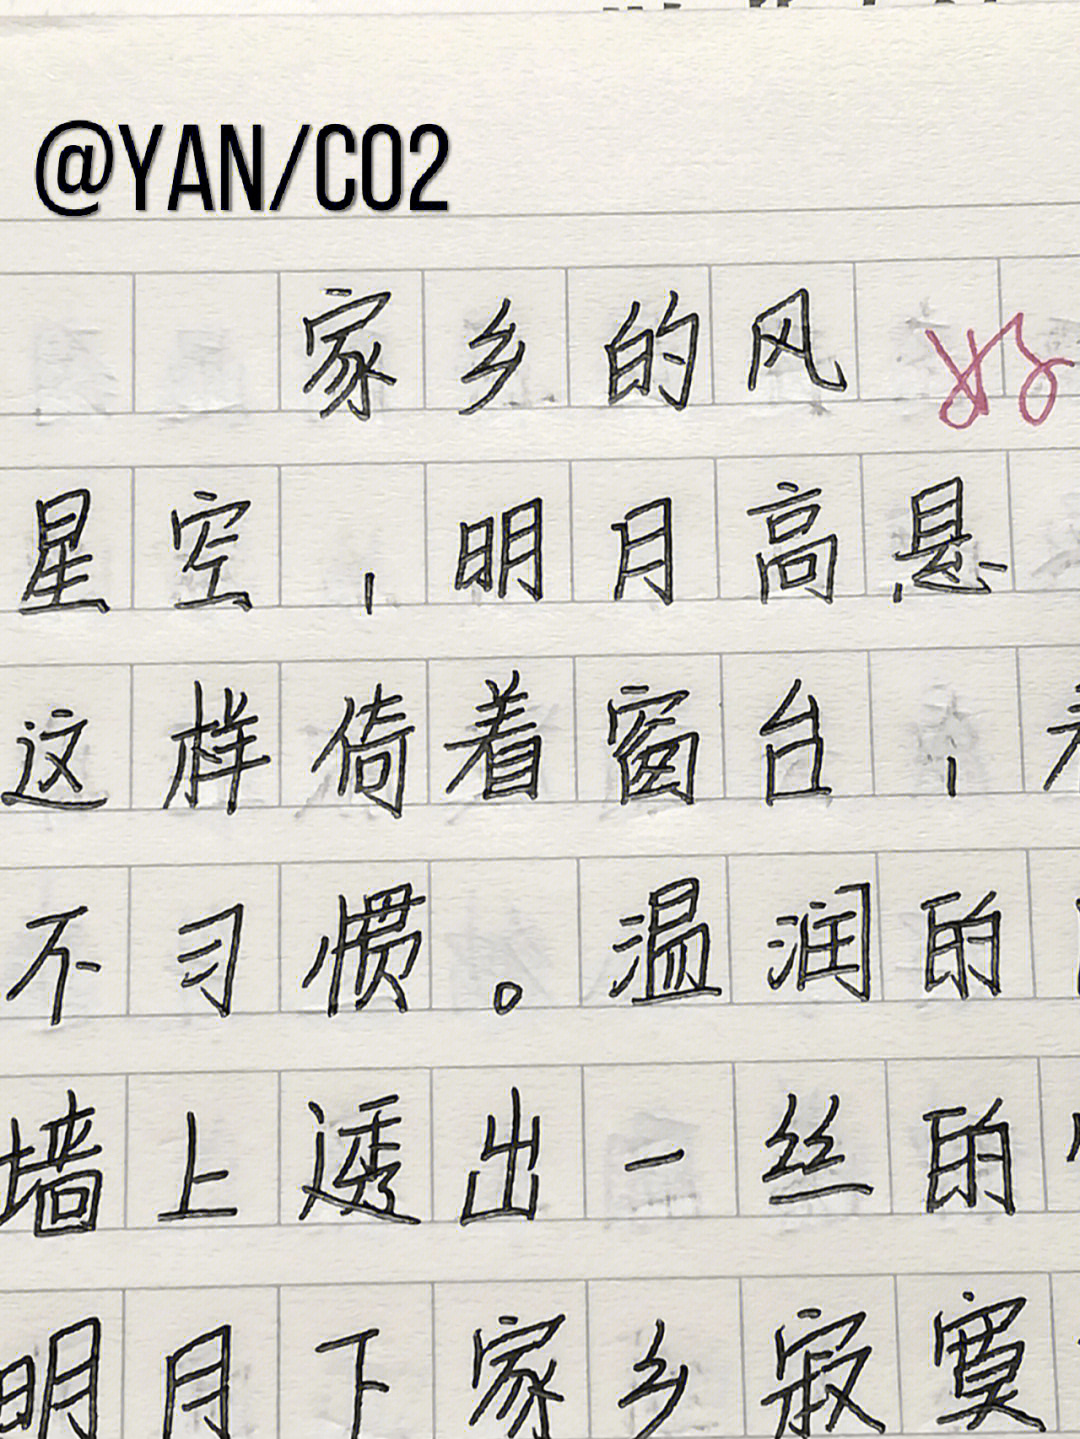 @YAN/CO2
家乡的风 好
星空，明月高悬
这样倚着窗台，
不习惯。温润的
墙上透出一丝的
明月下家乡寂寞